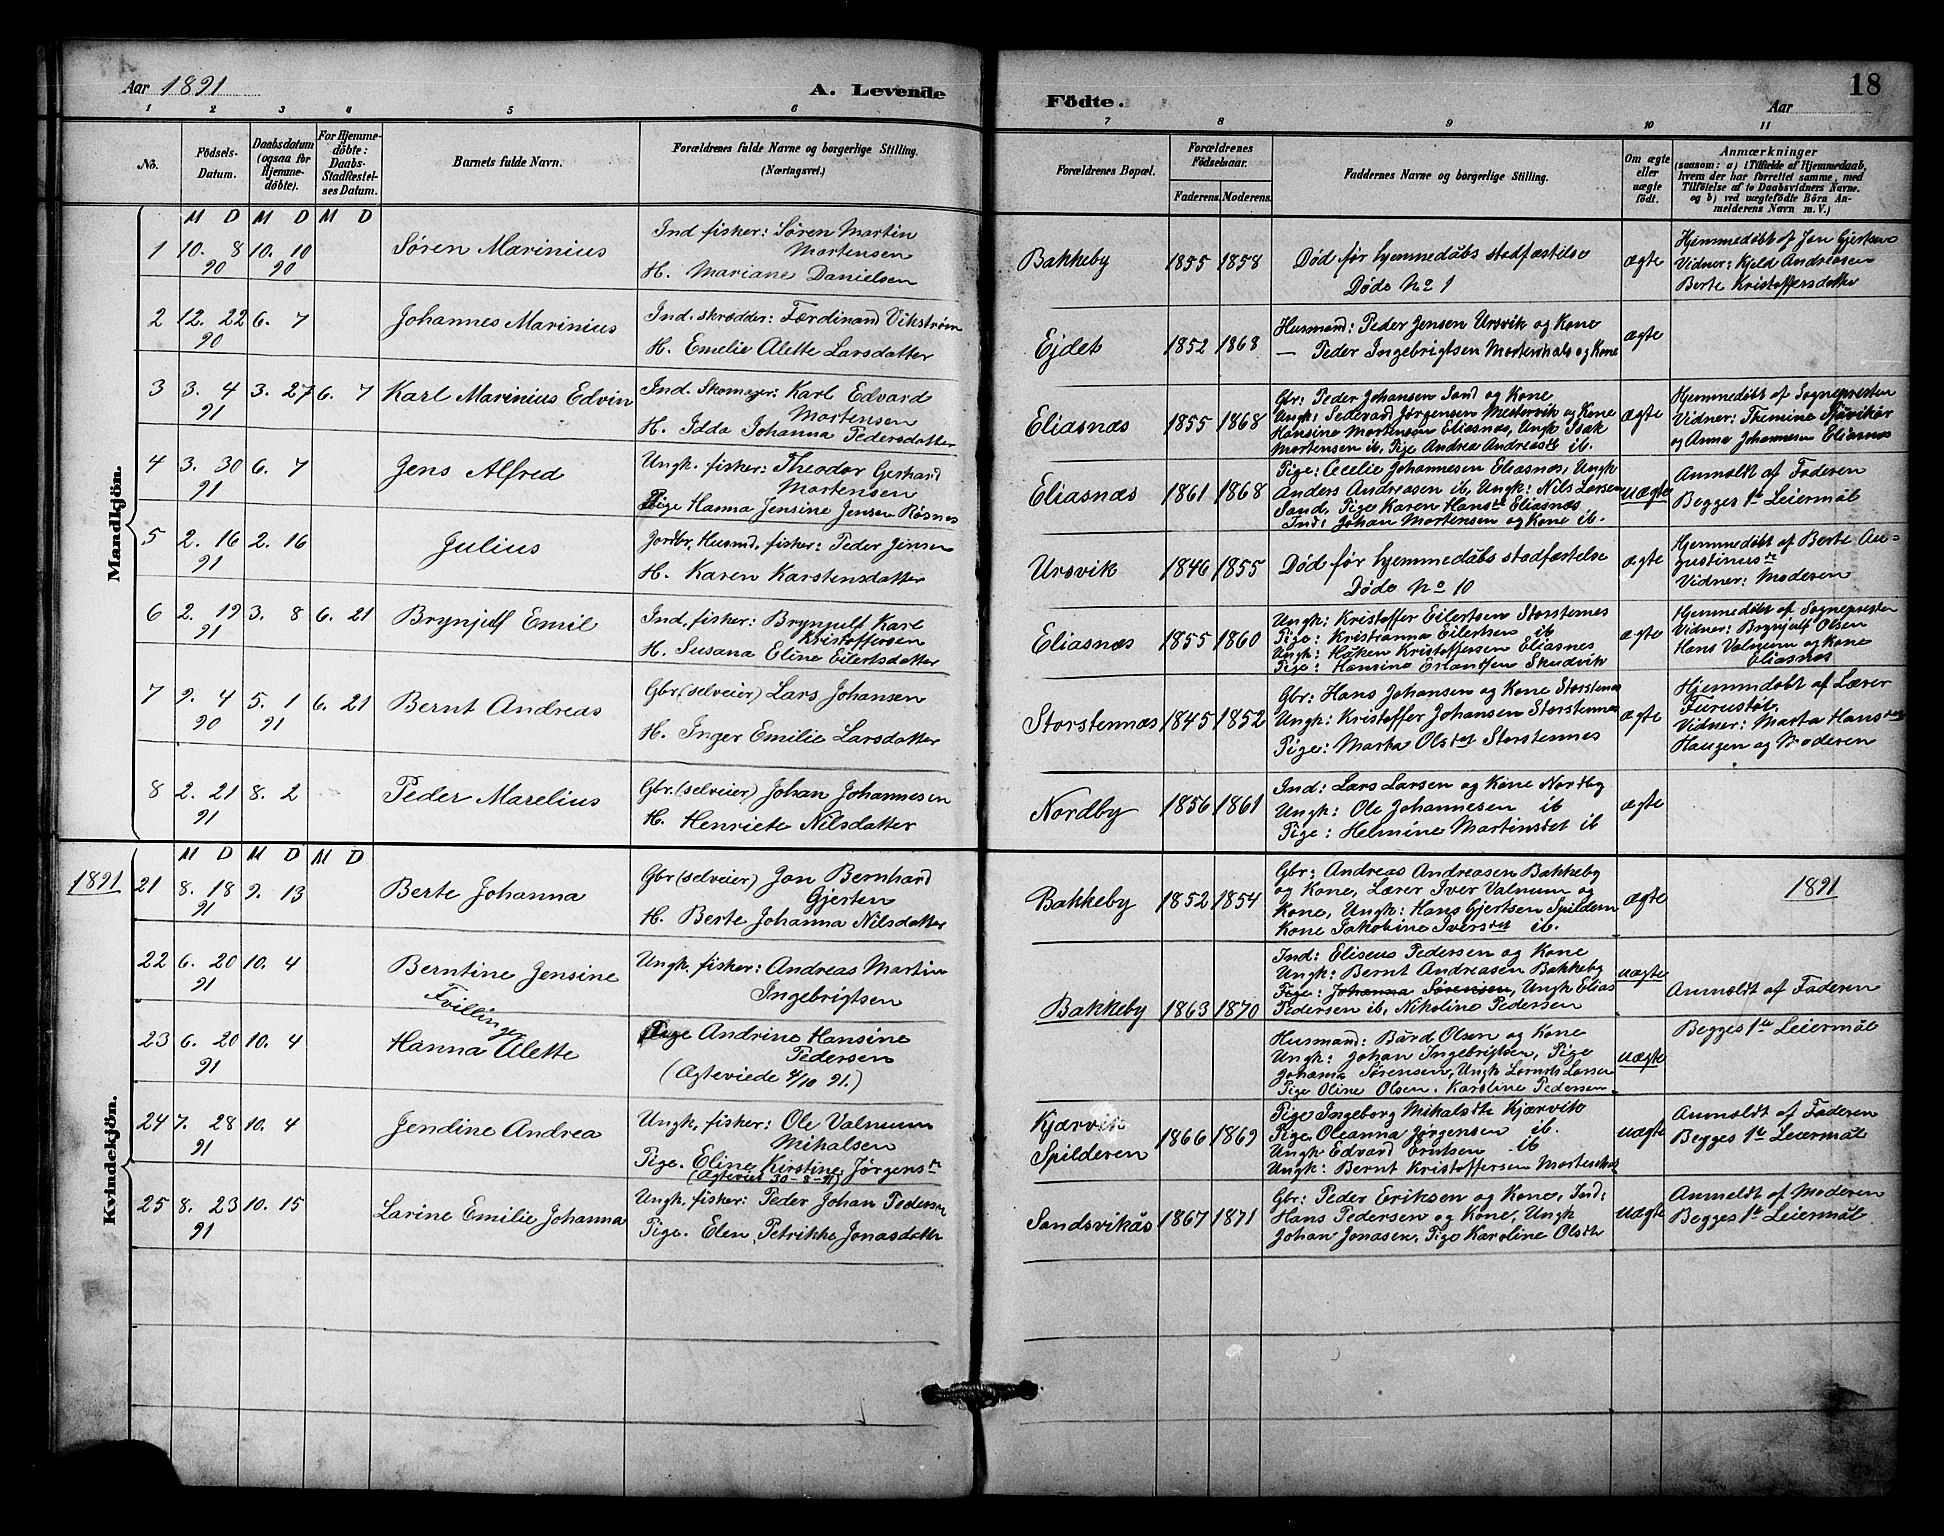 Aar 1891
A. Levende
Födte.
Aar
18
1 2 3 4 5 6 7 8 9 10 11
Nô.
Födsels-
Datum.
Daabsdatum
(ogsaa for
Hjemme-
döbte).
For Hjemme-
döbte:
Daabs-
Stadfæstel-
ses Datum.
Barnets fulde Navn.
Forældrenes fulde Navne og borgerlige Stilling.
(Næringsvei.)
Forældrenes Bopæl.
Forældrenes
Födselsaar.
Faderens. Moderens.
Faddernes Navne og borgerlige Stilling.
Om ægte
eller
uægte
födt.
Anmærkninger
(saasom: a) i Tilfælde af Hjemmedaab,
hvem der har forrettet samme, med
Tilföielse af to Daabsvidners Navne.
og b) ved uægtefödte Börn An-
melderens Navn m. V.)
Mandkjön.
M D M D M D
1 10. 8 10. 10
90 90
Søren Marinius
Ind. fisker: Søren Martin
Mortensen
H. Mariane Danielsen
Bakkeby 1855 1858
Død før hjemmedåbs stadfæstelse
Døde No 1
ægte
Hjemmedøbt af Jon Gjertsen
Vidner: Kjeld Andreasen
Berte Kristoffersdatter
2 12. 22 6. 7
90
Johannes Marinius
Ind. skrædder: Færdinand Vikstrøm
H. Emelie Alette Larsdatter
Ejdet 1852 1868
Husmand: Peder Jensen Ursvik og Kone
— Peder Ingebrigtsen Mortenhals og Kone
ægte
3 3. 4 3. 27 6. 7
91
Karl Marinius Edvin
Ind. Skomager: Karl Edvard
Mortensen
H. Idda Johanna Pedersdatter
Eliasnæs 1855 1868
Gbr: Peder Johansen Sand og Kone
Ungk: Sedevard Jørgensen Mestervik og Kone
Hansine Mortensen Eliasnæs, Ungk Isak
Mortensen ib, Pige Andrea Andreasdt ib.
ægte
Hjemmedøbt af Sognepresten
Vidner: Themine
og Anna Johannesen Eliasnæs
4 3. 30 6. 7
91
Jens Alfred
Ungk. fisker: Theodor Gerhard
Mortensen
Pige Hanna Jensine Jensen Røsnes
Eliasnæs 1861 1868
Pige: Cecelie Johannesen Eliasnæs, Ungk
Anders Andreasen ib, Ungk: Nils Larsen
Sand, Pige Karen Hansdt Eliasnæs
Ind: Johan Mortensen og Kone ib.
uægte
Anmeldt af Faderen
Begges 1te Leiermål
5 2. 16 2. 16
91
Julius
Jordbr, Husmd, fisker: Peder Jensen
H. Karen Karstensdatter
Ursvik 1846 1855
Død før hjemmedåbs stadfæstelse
Døde No 10
ægte
Hjemmedøbt af Berte Au=
gustinusdt
Vidner: Moderen
6 2. 19 3. 8 6. 21
91
Brynjulf Emil
Ind. fisker: Brynjulf Karl
Kristoffersen
H. Susana Eline Eilertsdatter
Eliasnæs 1855 1860
Ungk: Kristoffer Eilertsen Storstennes
Pige: Kristianna Eilertsen ib
Ungk: Håken Kristoffersen Eliasnes
Pige: Hansine Erlandsen Skudvik
ægte
Hjemmedøbt af Sognepresten
Vidner: Brynjulf Olsen
Hans Valnum og Kone
Eliasnæs
7 9. 4 5. 1 6. 21
90 91
Bernt Andreas
Gbr. (selveier) Lars Johansen
H. Inger Emilie Larsdatter
Storstennæs 1845 1852
Gbr: Hans Johansen og Kone Storstennes
Ungk: Kristoffer Johansen Storstennes
Pige: Marta Olsdt Storstennes
ægte
Hjemmdøbt af Lærer
Furustøl
Vidner: Marta Hansdt
Haugen og Moderen
8 2. 21 8. 2
91
Peder Marelius
Gbr. (selveier) Johan Johannesen
H. Henriete Nilsdatter
Nordby 1856 1861
Ind: Lars Larsen og Kone Nordby
Ungk: Ole Johannesen ib
Pige: Helmine Martinsdt ib
ægte
Kvindekjön.
M D M D M D
1891
21 8. 18 9. 13
91
Berte Johanna
Gbr (selveier) Jon Bernhard
Gjerten
H. Berte Johanna Nilsdatter
Bakkeby 1852 1854
Gbr: Andreas Andreasen Bakkeby
og Kone, Lærer Iver Valnum og
Kone, Ungk: Hans Gjertsen Spildern
Kone Jakobine Iversdt ib.
ægte
1891
22 6. 20 10. 4
91
Berntine Jensine
Tvillinger
Ungk. fisker: Andreas Martin
Ingebrigtsen
Bakkeby 1863 1870
Ind: Eliseus Pedersen og Kone
Ungk: Bernt Andreasen Bakkeby
Pige: Johanna Sørensen, Ungk Elias
Pedersen ib, Nikoline Pedersen
uægte
Anmeldt af Faderen
23 6. 20 10. 4
91
Hanna Alette
Pige Andrine Hansine
Pedersen
(Ægteviede 4/10 91.)
Husmand: Bård Olsen og Kone
Ungk: Johan Ingebrigtsen, Pige
Johanna Sørensen, Ungk Larsen
Pige Oline Olsen. Karoline Pedersen
uægte
Begges 1te Leiermål
24 7. 28 10. 4
91
Jendine Andrea
Ungk. fisker: Ole Valnum
Mihalsen
Pige. Eline Kirstine Jørgensdt
(Ægteviet 30-8-91)
Kjærvik
Spilderen 1866 1869
Pige Ingeborg Mihalsdtr Kjærvik
Pige. Oleanna Jørgensen ib.
Ungk Edvard Erntsen ib
Ungk: Bernt Kristoffersen
uægte
Anmeldt af Faderen
Begges 1te Leiermål
25 8. 23 10. 15
91
Larine Emilie Johanna
Ungk. fisker: Peder Johan Pedersen
Pige. Elen Petrikke Jonasdatter
Sandsvikås 1867 1871
Gbr: Peder Eriksen og Kone, Ind:
Hans Pedersen og Kone, Ungk
Johan Jonasen, Pige Karoline Olsdtr
uægte
Anmeldt af Moderen
Begges 1te Leiermål